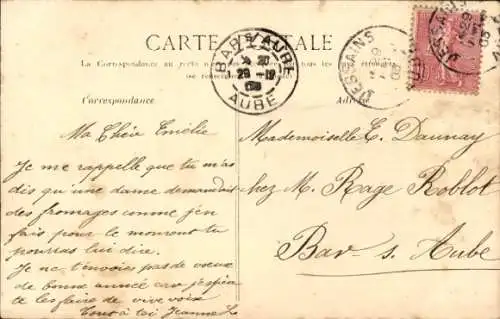 CARTE POSTALE
La Correspondance au recto n'est pas acceptée par tous les pays étrangers
Correspondance
Adresse
BAR S/ AUBE
29-12
08
AUBE
JESSAINS
Ma Chère Emélie
Je me rappelle que tu m'as
dis qu'une dame demandait
des fromages comme j'en
fais pour le moment tu
pourras lui dire.
Je ne t'envoies pas de vœux
de bonne année car j'espère
te les faire de vive voix
Tout à toi Jeanne L
Mademoiselle E. Daunay
chez M. Rage Roblot
Bar s. Aube